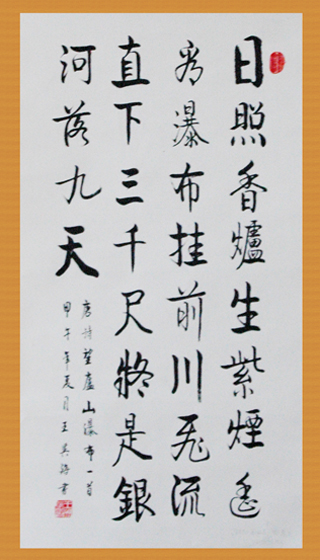 日照香爐生紫煙遙
看瀑布挂前川飛流
直下三千尺疑是銀
河落九天
唐詩望廬山瀑布一首
甲午年夏月王書